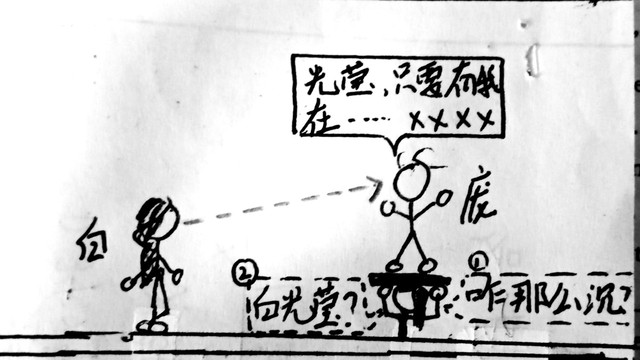 光莹，只要有我
在…… ××××
白
废
②
白光莹？
①
咋那么沉？